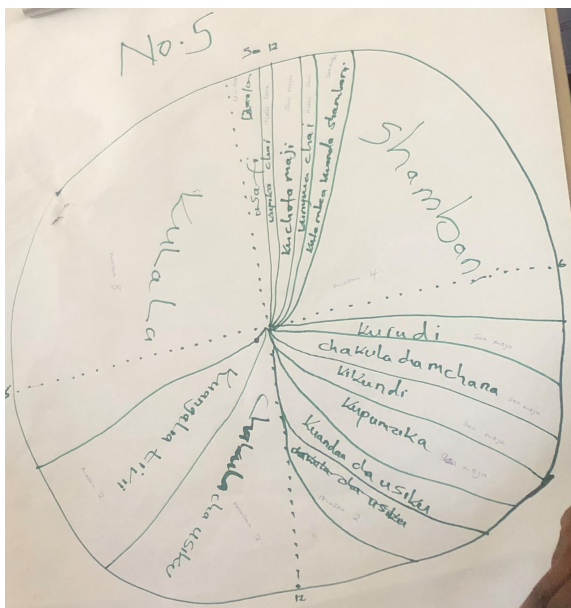 No.5
Saa 12
usafi
kupika chai
kuchota maji
kunywa chai
kutembea kwenda shambani
Shambani
masaa 4
6
kurudi
Saa moja
chakula cha mchana
Saa moja
kikundi
Saa moja
kupumzika
Saa moja
kuandaa cha usiku
chakula cha usiku
masaa 2
12
chakula cha usiku
masaa 2
kuangalia tivii
masaa 2
kulala
masaa 8